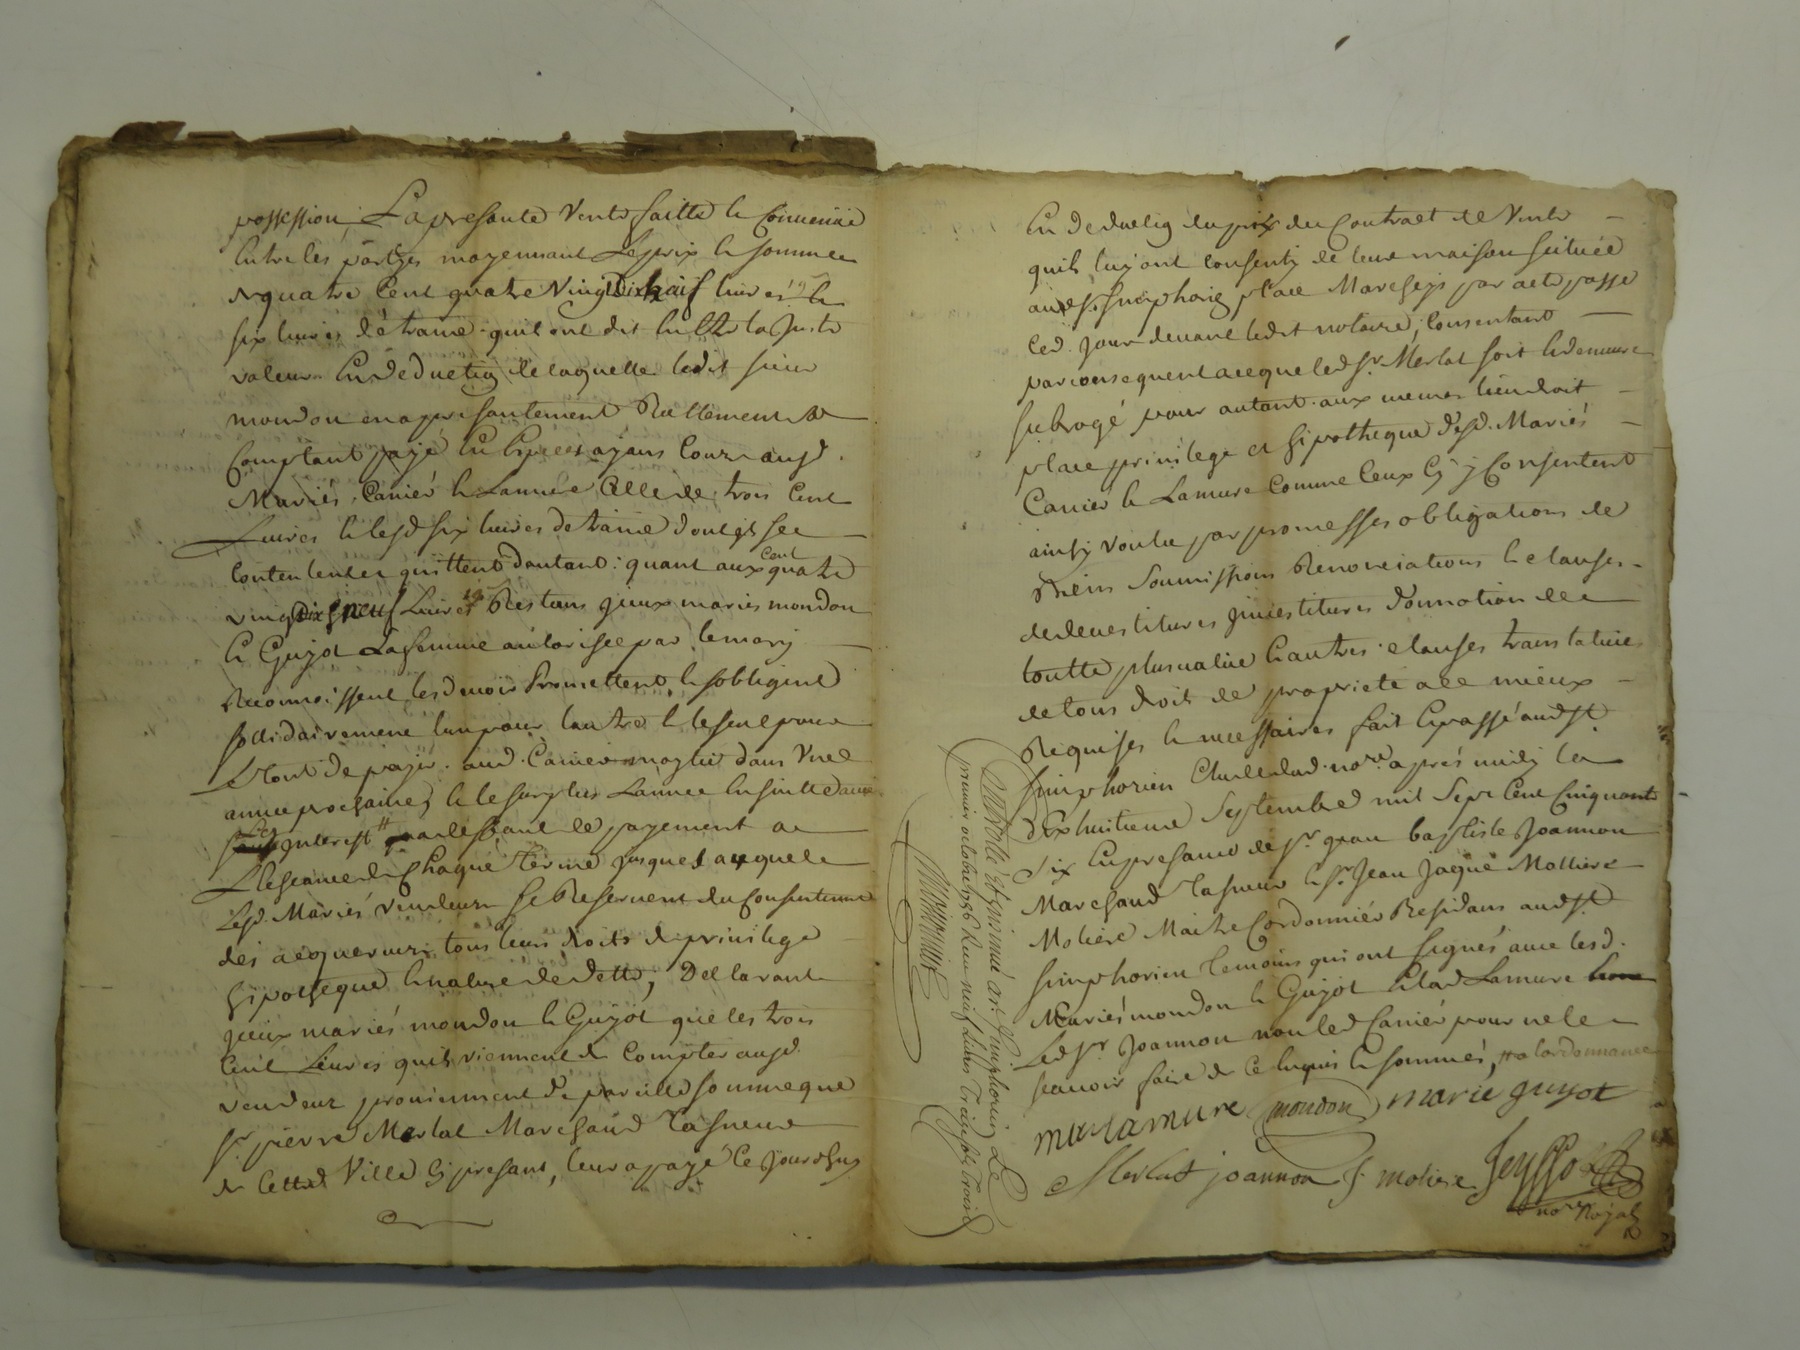 possession, La presante Vente faitte Et Convenüe
Entre les partyes moyennant Le prix Et somme
de quatre Cent quatre Vingt Dix huis livres Et
six livres d'étraine quils ont dit Entre la juste
valeur En deduction de laquelle ledit sieur
mondon en a presantement Reellement Et
Comptant payé En Especes ayans Cours ausd.
Mariés Canier Et Lamure Celle de trois Cent
Livres Et lesd six livres detraine dont ils se
contentent Et quittent dautant: quant aux Cent quatre
vingt Dix neuf Livres Restans yceux mariés mondon
Et Guyot La femme authorisée par lemary
Reconnoissent les devoir Promettent Et sobligent
sollidairement lun pour lautre Et le seul pour
Le tout de payer aud. Canier moytié dans Une
année prochaine, Et le surplus Lannee Ensuitte avec
interest par le payement a
L'Escance de Chaque terme jusques auquel
Lesd. Mariés Vendeurs se Reservent du Consentement
des acquereurs tous leurs droits de privilege
hipotheque Et nature de dette, Déclarant
yceux mariés mondon Et Guyot que les trois
Cent Livres quils viennent de Compter ausd.
vendeurs proviennent de pareille somme que
sr. pierre Merlat Marchand Tasneur
de Cette Ville Cy presant, leur a payé Ce jourdhuy
En deduction du prix du Contract de Vente
quils luy ont Consenty de leur maison scituée
aud St. Simphorien place Marchejs par acte passé
Ced. jour devant ledit notaire, Consentant
par consequent a ce que led Sr. Merlat soit Et demeure
subrogé pour autant aux memes lieu droit
place privilege et hipotheque desd. Mariés
Canier Et Lamure Comme Ceux Cy y Consentent
ainsy Voulu par promesses obligations de
Biens Soumissions Renonciations Et clauses
de devestitures investitures donnation de
toutte plusvalüe Et autres clauses translatives
de tous droit de propriete a ce mieux
Requises Et necessaires fait Et passé aud St.
simphorien Etude dud. nore. après midy le
dixhuitieme Septembre mil Sept Cent Cinquante
Six En presance de sr. jean baptiste Joannon
Marchand Tasneur Et sr. Jean Jaque Mollière
Molière Maitre Cordonnier Residans aud St.
simphorien Temoins qui ont signés avec lesd.
Mariés mondon Et Guyot Et lad Lamure
Led sr. Joannon non led Canier pour ne le
scavoir faire de Ce Enquis Et sommés, a lordonnance
m Lamure mondon marie guyot
Merlat joannon J. moliere Jeysso
nore. Royal
Controllé et insinué a St. Simphorien Le
premier octobre 1756 Reçu neuf livres